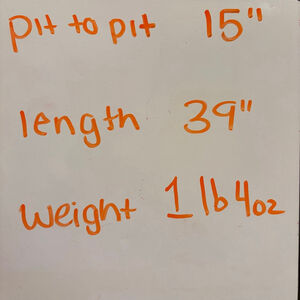 pit to pit 15"
length 39"
weight 1 lb 4oz